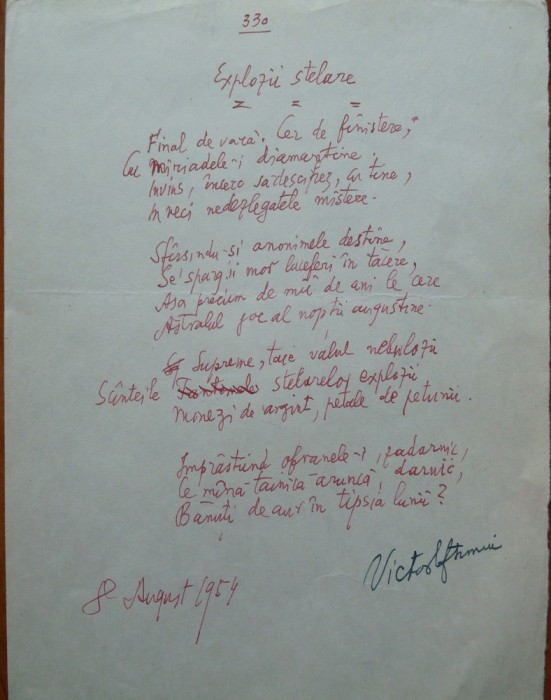 330
Explozii stelare
Final de vară. Cer de finistere,
Cu miriadele-i diamantine.
Învins, încerc să descifrez, cu tine,
În veci nedezlegatele mistere.
Sfîrșindu-și anonimele destine,
Se sparg și mor luceferi în tăcere,
Așa precum de mii de ani le cere
Astralul joc al nopții augustine.
Supreme, taie vălul nebulozii
Scînteile stelarelor explozii
Monezi de argint, petale de petunii.
Împrăștiind ofrandele-i, zadarnic,
Ce mînă tainică aruncă, darnic,
Bănuți de aur în tipsia lunii?
Victor Eftimiu
8 August 1954